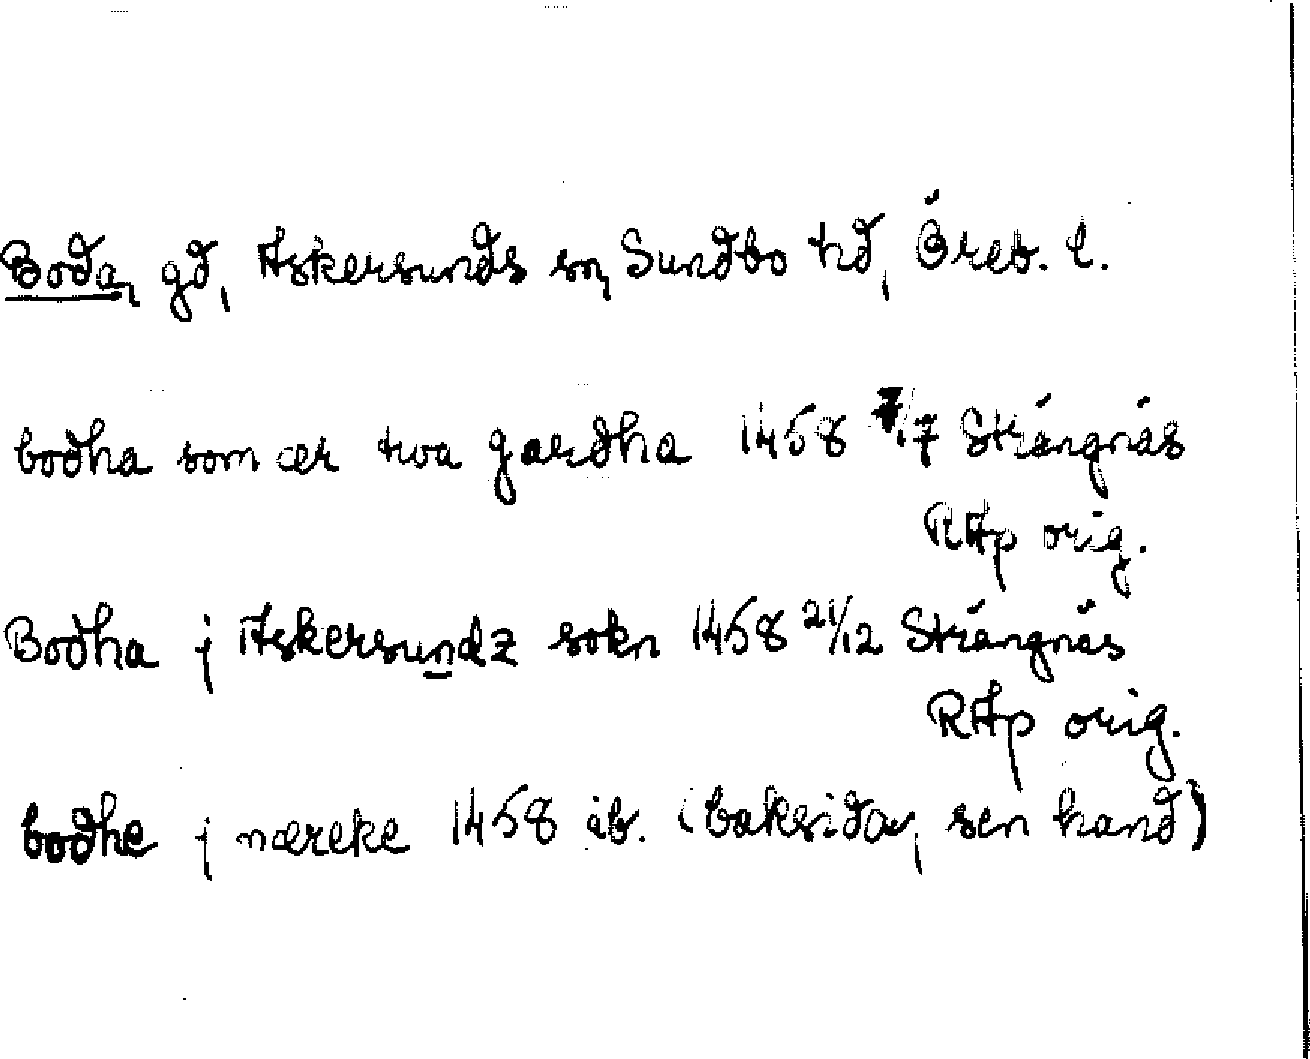 Boda, gd, Askersunds sn, Sundbo hd, Öreb. l.
bodha som ær twa gardha 1458 7/7 Strängnäs
RAp orig.
Bodha j Askersundz sokn 1458 21/12 Strängnäs
RAp orig.
bodhe j næreke 1458 ib. (baksidan, sen hand)